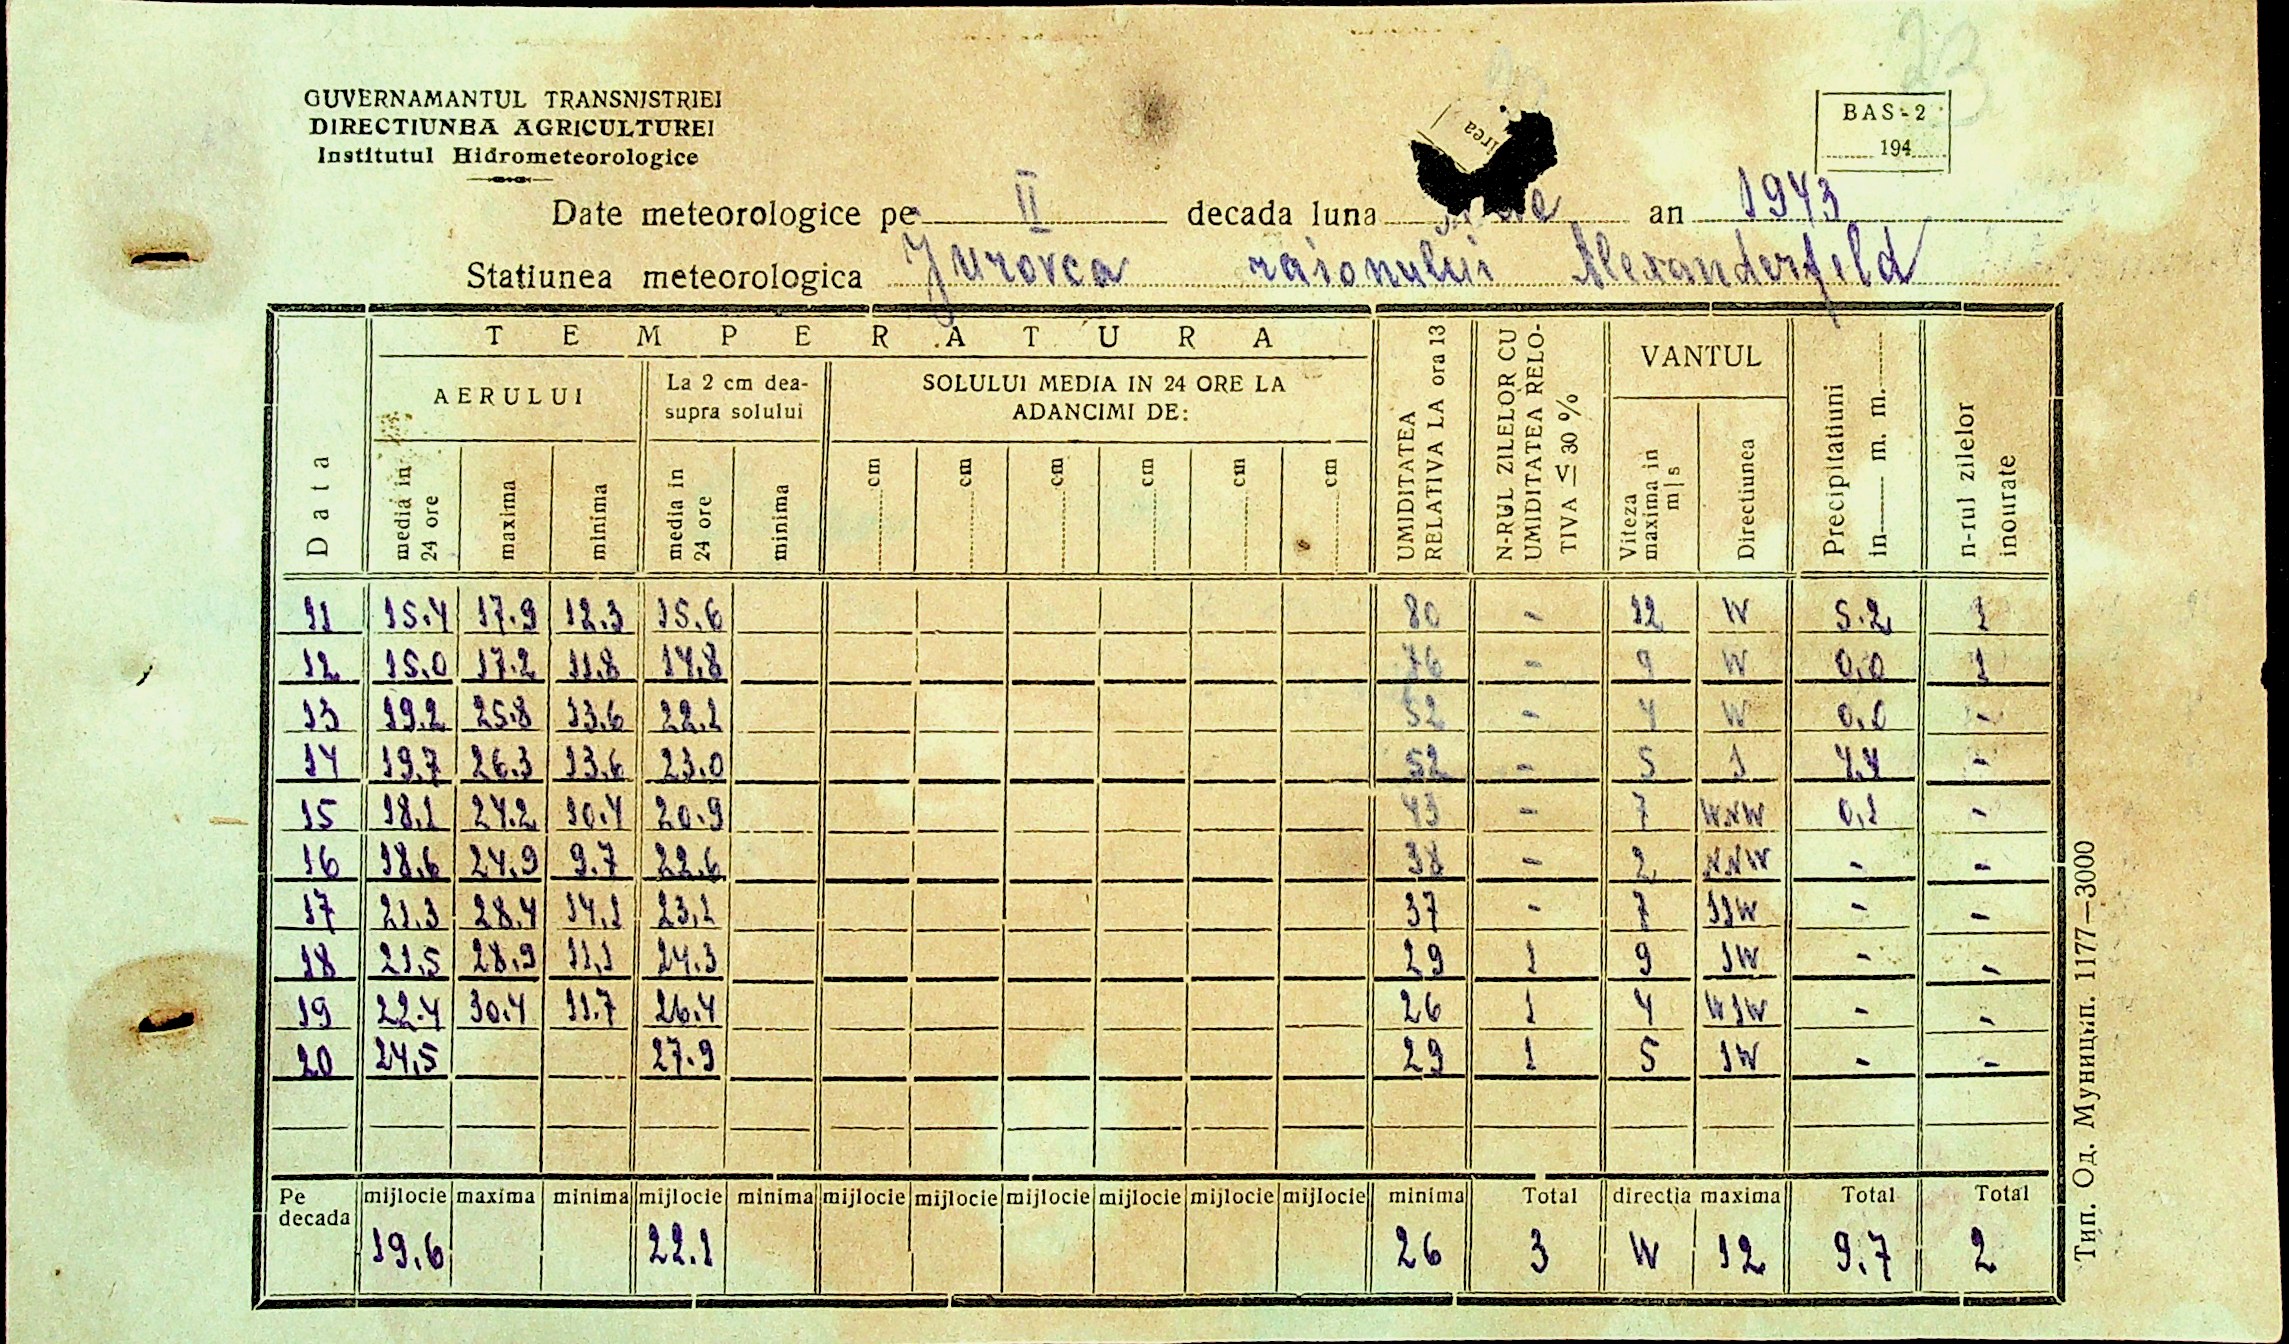 23
GUVERNAMANTUL TRANSNISTRIEI
DIRECTIUNEA AGRICULTUREI
Institutul Hidrometeorologice
BAS-2
194
Date meteorologice pe II decada luna an 1943
Statiunea meteorologica Jurovca raionului Alexanderfeld
TEMPERATURA
AERULUI
La 2 cm dea-
supra solului
SOLULUI MEDIA IN 24 ORE LA
ADANCIMI DE:
VANTUL
Data
media in
24 ore
maxima
minima
media in
24 ore
minima
cm cm cm cm cm cm
UMIDITATEA
RELATIVA LA ora 13
N-RUL ZILELOR CU
UMIDITATEA RELO-
TIVA ≤ 30 %
Viteza
maxima in
m|s
Directiunea
Precipitatiuni
in m. m.
n-rul zilelor
inourate
11 15.4 17.9 12.3 15.6 80 - 12 W 5.2 1
12 15.0 17.2 11.8 14.8 76 - 9 W 0,0 1
13 19.2 25.8 13.6 22.1 52 - 4 W 0,0 -
14 19.7 26.3 13.6 23.0 52 - 5 S 4.4 -
15 18.1 24.2 10.4 20.9 43 - 7 WNW 0,1 -
16 18.6 24.9 9.7 22.6 38 - 2 NNW - -
17 21.3 28.4 14.1 23.1 37 - 7 SSW - -
18 21.5 28.9 11.1 24.3 29 1 9 SW - -
19 22.4 30.4 11.7 26.4 26 1 4 WSW - -
20 24,5 27.9 29 1 5 SW - -
Pe
decada
mijlocie maxima minima mijlocie minima mijlocie mijlocie mijlocie mijlocie mijlocie mijlocie minima Total directia maxima Total Total
19.6 22.1 26 3 W 12 9.7 2
Тип. Од. Муницып. 1177—3000